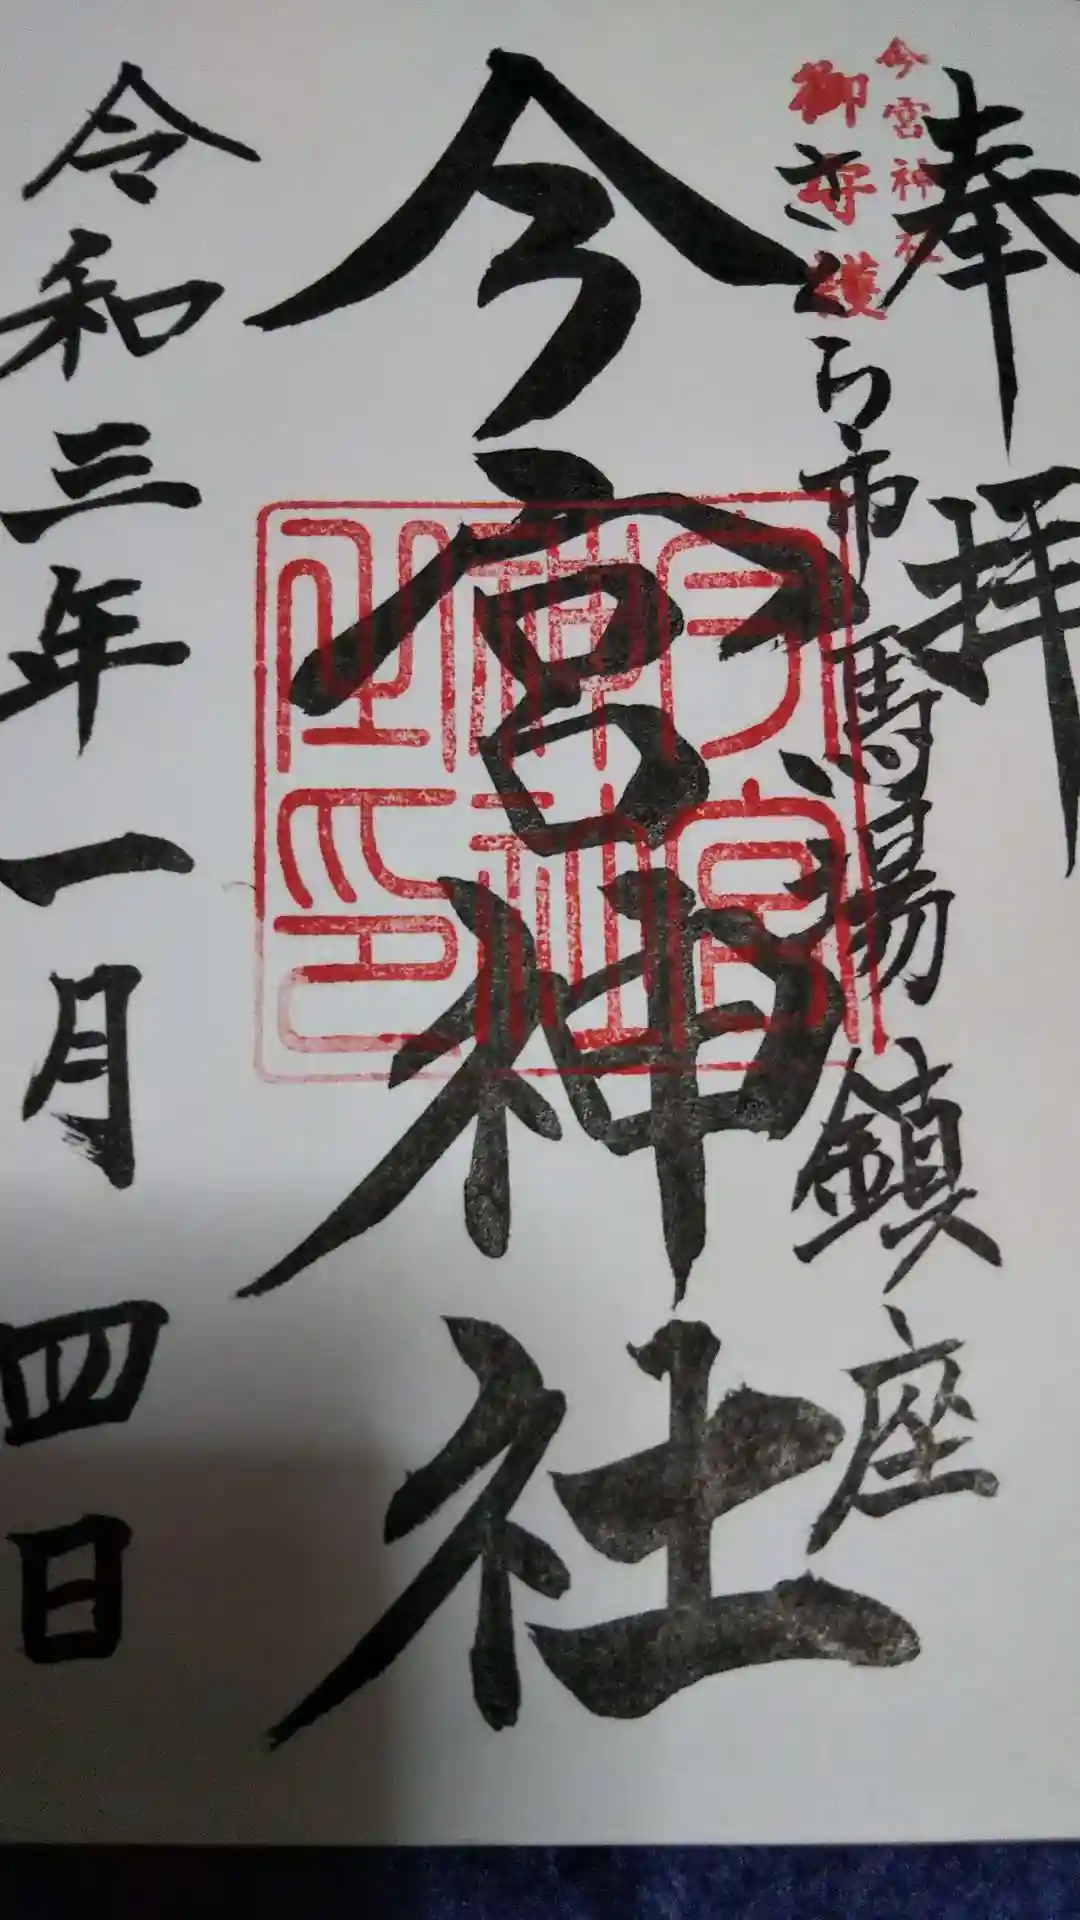 奉拝
今宮神社
御守護
さくら市馬場鎮座
今宮神社
今宮神社之印
令和三年一月四日